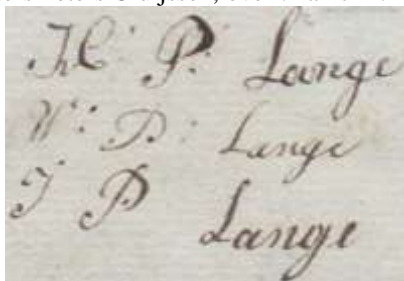 H: P: Lange
W: P: Lange
J P Lange